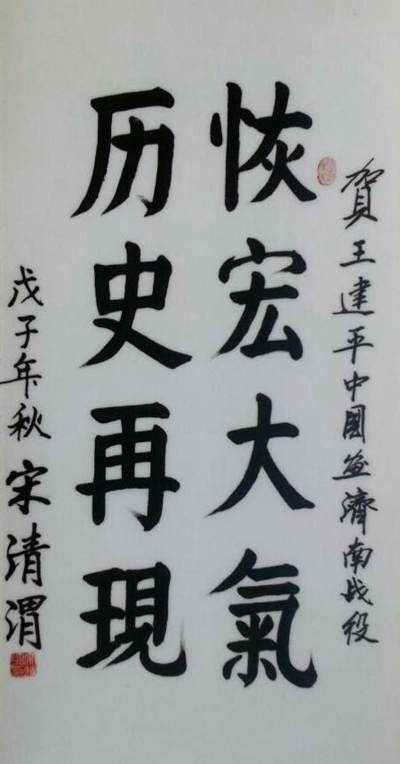 賀王建平中國畫濟南战役
恢宏大氣
历史再現
戊子年秋宋清渭